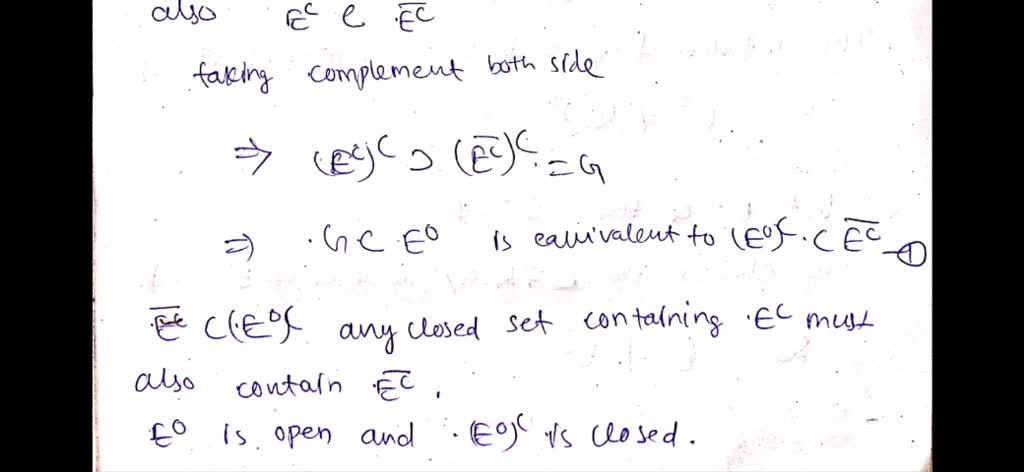 also Eᶜ C \overline{Eᶜ}
taking complement both side
⇒ (Eᶜ)ᶜ ⊃ (\overline{Eᶜ})ᶜ = G
⇒ G ⊂ E⁰ is equivalent to (E⁰)ᶜ ⊂ \overline{Eᶜ} —①
\overline{Eᶜ} ⊂ (E⁰)ᶜ any closed set containing Eᶜ must
also contain \overline{Eᶜ}.
E⁰ is open and (E⁰)ᶜ is closed.